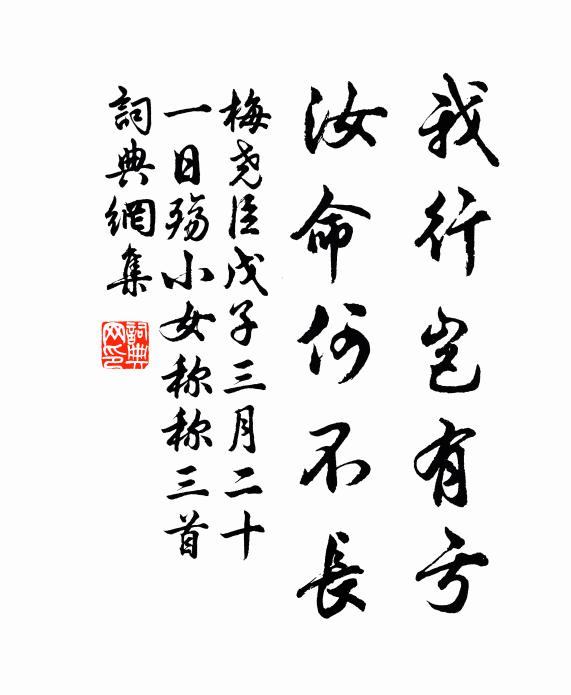 我行岂有亏
汝命何不長
梅尧臣戊子三月二十
一日殇小女称称三首
詞典網集
詞典
网印